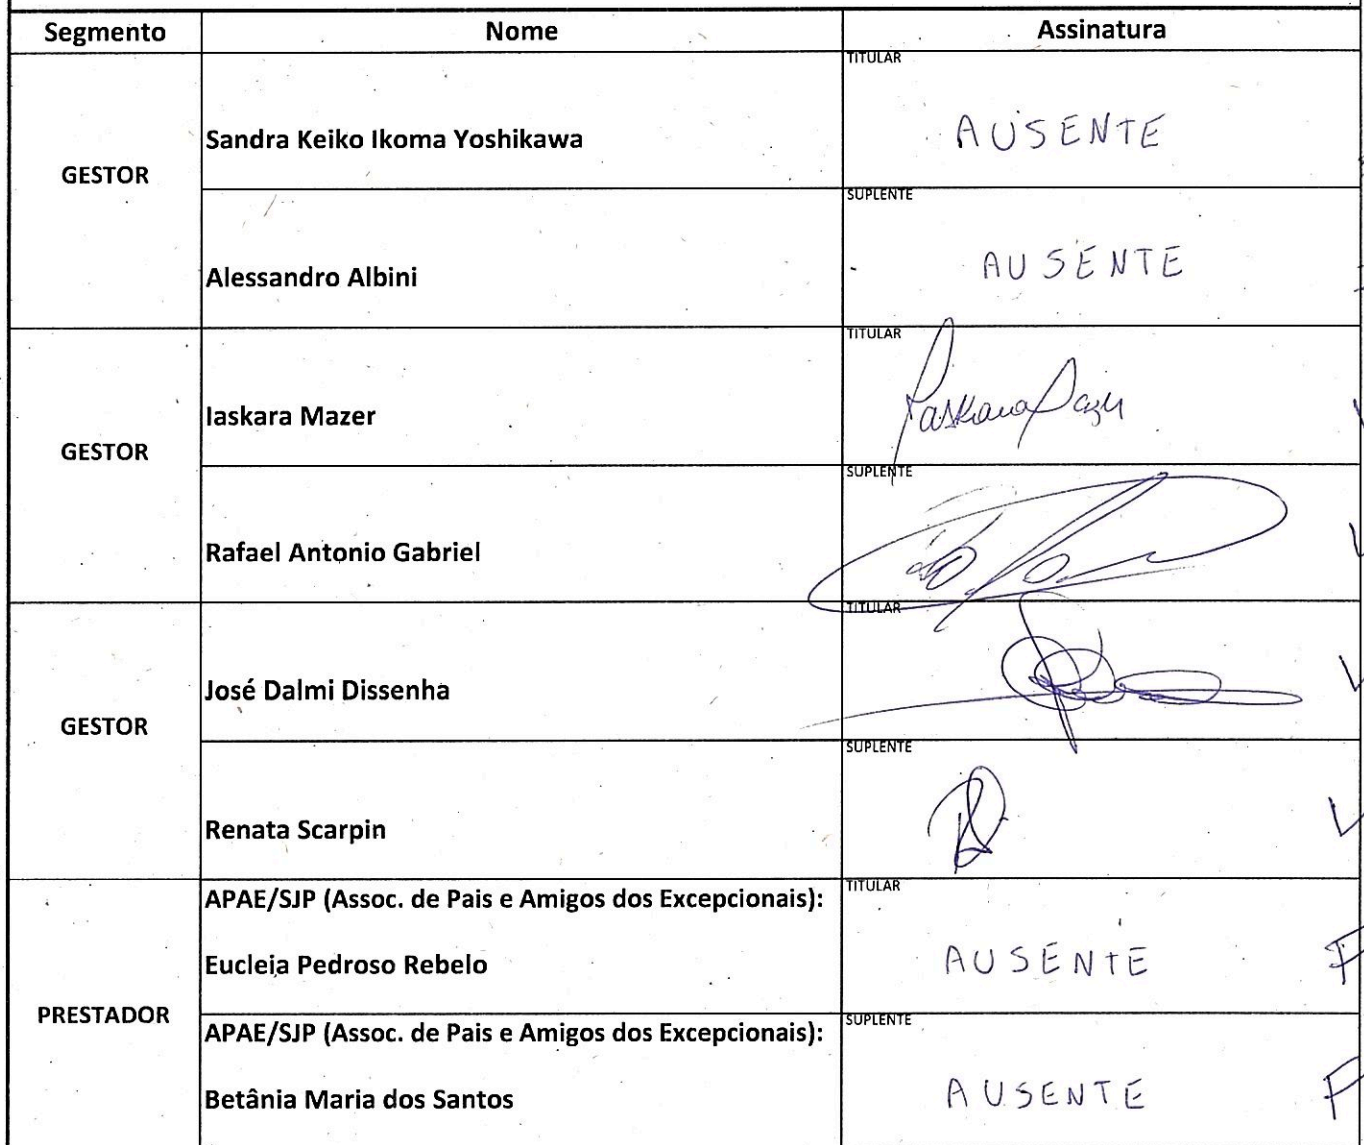 Segmento Nome Assinatura
GESTOR
Sandra Keiko Ikoma Yoshikawa
TITULAR
AUSENTE
Alessandro Albini
SUPLENTE
AUSENTE
GESTOR
Iaskara Mazer
TITULAR
Iaskara Mazer
Rafael Antonio Gabriel
SUPLENTE
GESTOR
José Dalmi Dissenha
TITULAR
Renata Scarpin
SUPLENTE
PRESTADOR
APAE/SJP (Assoc. de Pais e Amigos dos Excepcionais):
Eucleia Pedroso Rebelo
TITULAR
AUSENTE
F
APAE/SJP (Assoc. de Pais e Amigos dos Excepcionais):
Betânia Maria dos Santos
SUPLENTE
AUSENTE
F